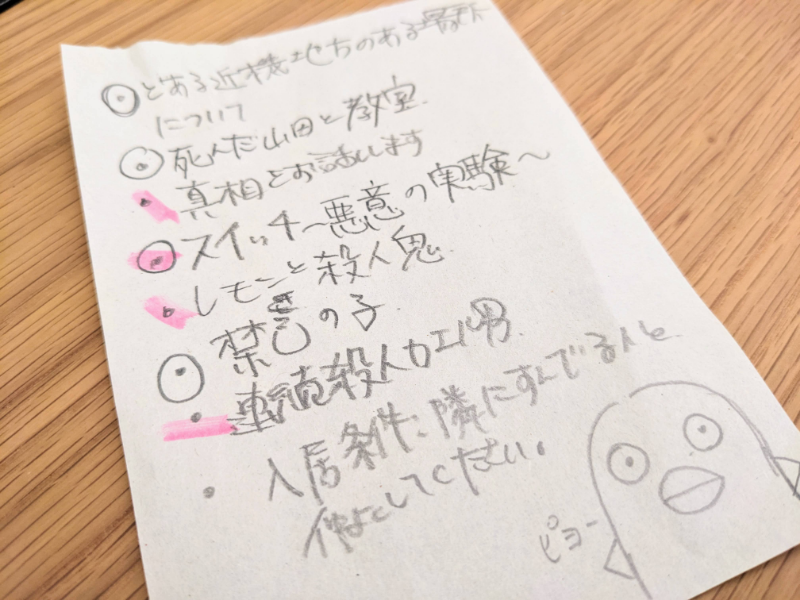 とある近畿地方のある場所
について
死んだ山田と教室
真相とお話します
スイッチ〜悪意の実験〜
レモンと殺人鬼
禁忌の子
殺人カエル男
入居条件:隣にすんでる人と
仲よくしてください。
ピヨー